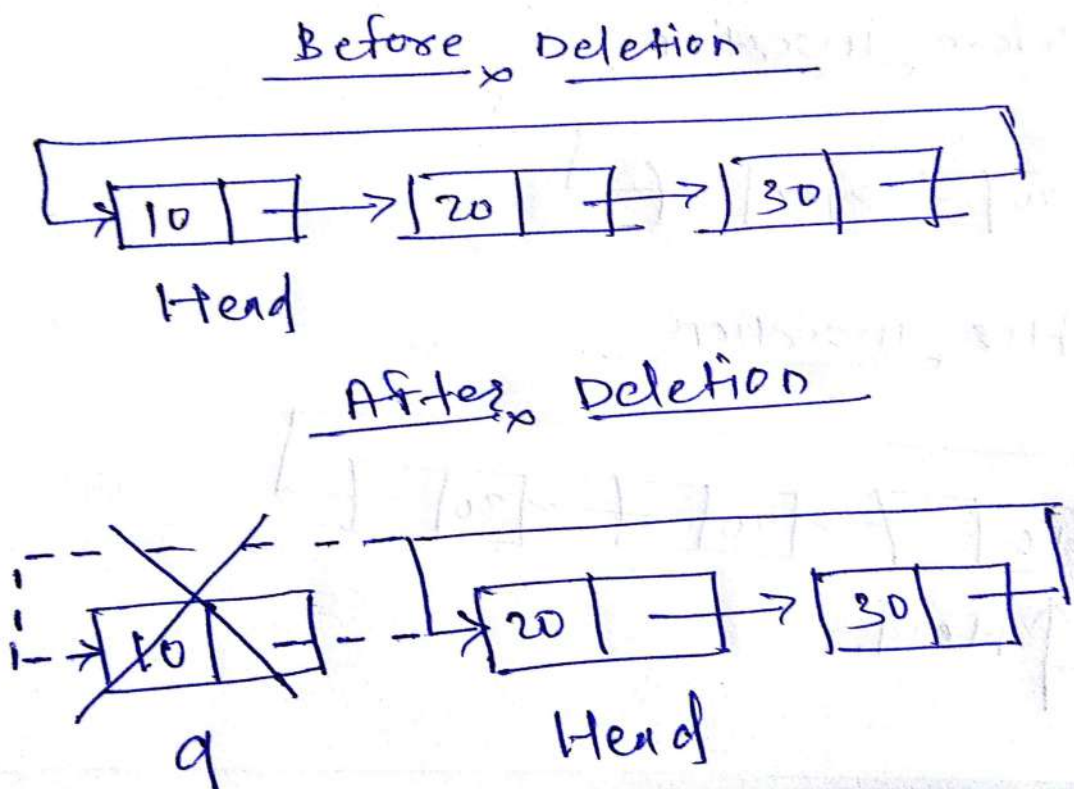 Before Deletion
10 20 30
Head
After Deletion
10 20 30
q Head